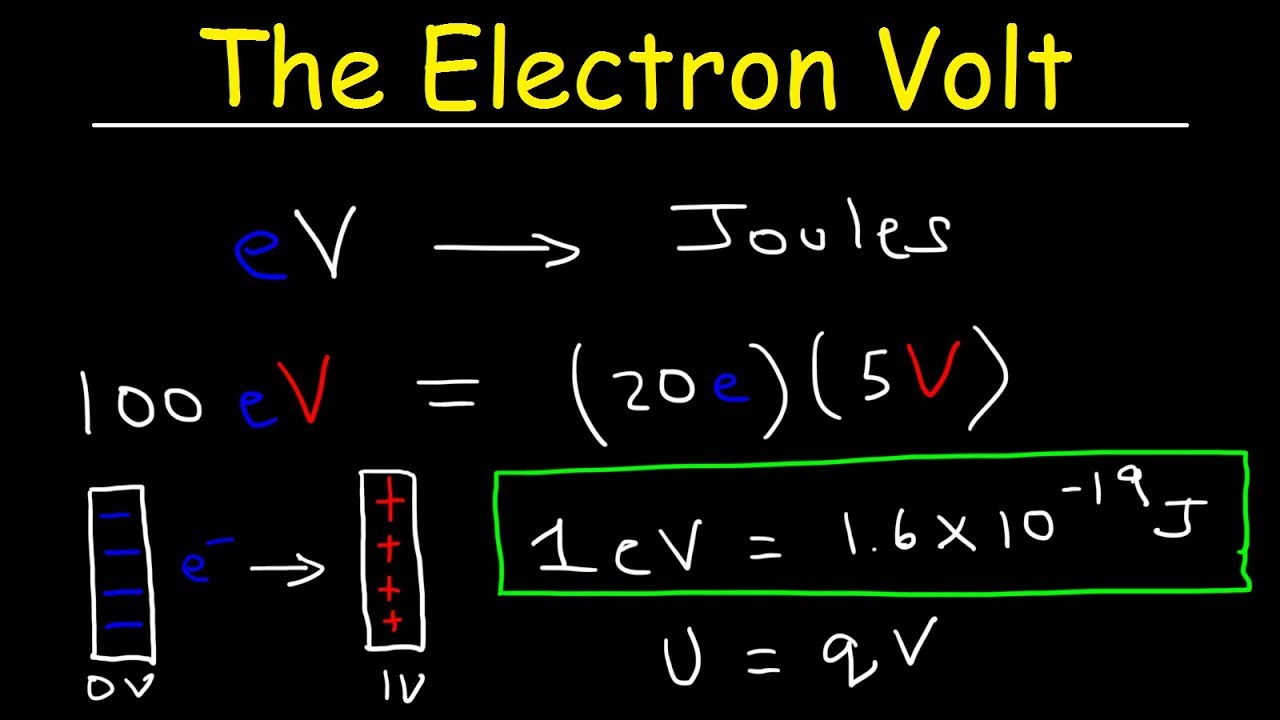 The Electron Volt
eV → Joules
100 eV = (20e)(5V)
− − − −
e⁻ →
+ + + +
0V
1V
1eV = 1.6×10⁻¹⁹ J
U = qV